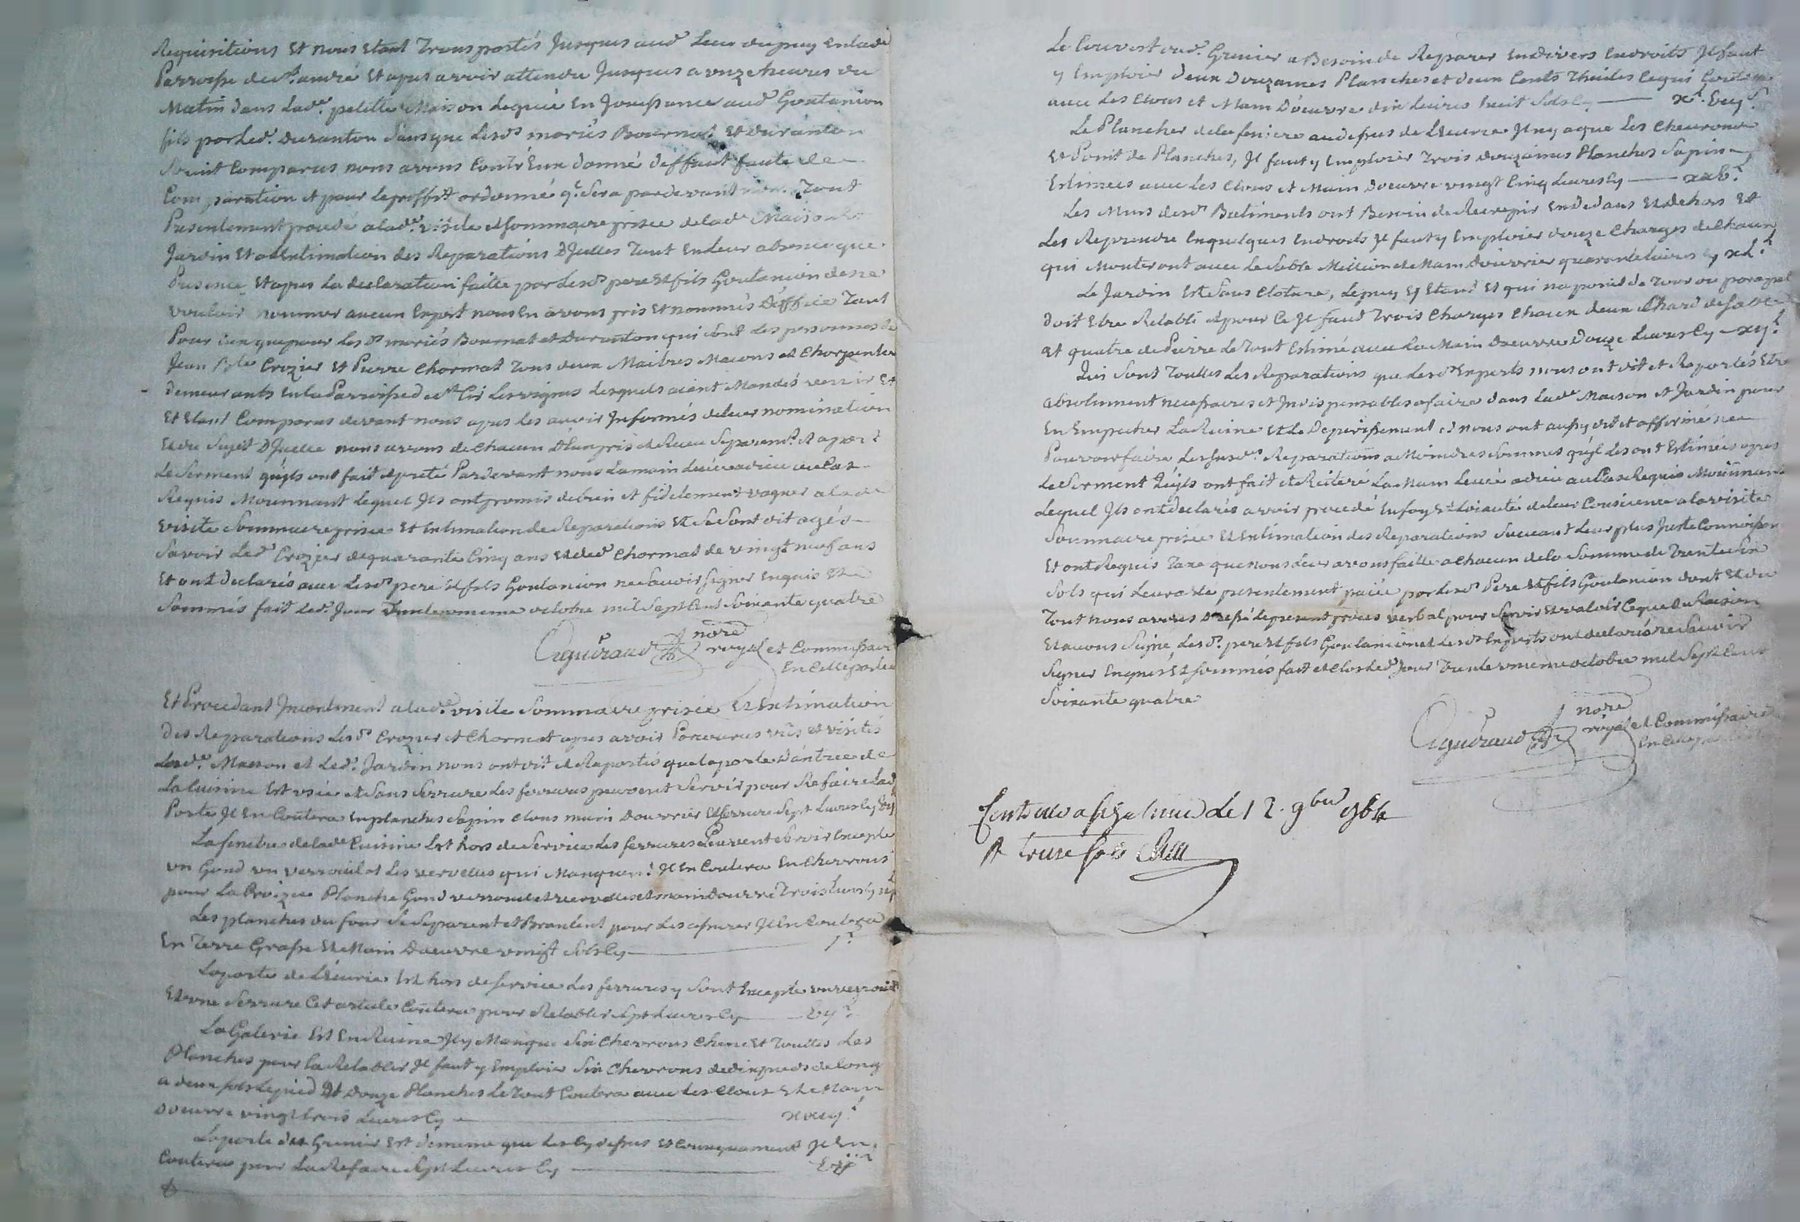 Requisitions Et nous Etant Transportés Jusques aud. Lieu du puy En lade.
Parroisse de st. andré Et apres avoir attendu Jusques a onze heures du
Matin dans lade. petitte Maison Leguée En Jouissance aud. Goutanion
fils par led. Duranton Sans que lesds. mariés Bournat Et Duranton
Soient Comparus nous avons Contr'Eux donné deffaut faute de
Comparution et pour le proffit ordonné q. Sera par devant Tout
Presentement procédé a lade. visite et Sommaire prisée de lade. Maison
Jardin Et a lEstimation des Reparations D'Jcelles Tant En leur absence que
Presence Et apres La declaration faitte par lesds. pere Et fils Goutanion de ne
vouloir nommer aucun Expert nous En avons pris Et nommés D'office Tant
Pour Eux que pour Les ds. mariés Bournat et Duranton qui Sont des personnes de
Jean Bte. Crozier Et Pierre Chormat Tous deux Maitres Macons et Charpentier
Demeurants En la Parroisse de st. Les vignes Lesquels aiant Mandés venir Et
Et Etant Comparus devant nous apres Les avoir Jnformés de leur nomination
Et du Sujet D'Jcelle nous avons de Chacun D'Eux pris et Receu Separemt. et apart
Le Serment qu'jls ont fait et preté Pardevant nous La main Levée a dieu au Cas
Requis Moiennant lequel Jls ont promis de bien et fidelement vaquer a lade.
visite Sommaire prisée Et Estimation de Reparations Et Se Sont dit agés
Savoir Led. Crozier de quarante Cinq ans Et led. Chormat de vingt neuf ans
Et ont declarés avec Lesds. pere Et fils Goutanion ne Savoir Signer Enquis Et
Sommés fait Led. Jour Trente unieme octobre mil Sept Cent Soixante quatre
nore.
royal et Commissaire
En Cette partie
Et Procedant Jncontinent a lade. visite Sommaire prisée Et Estimation
Des Reparations Lesds. Crozier et Chormat apres avoir Parcourus vûs et visités
Lade. Maison et Led. Jardin nous ont dit et Raportés que la porte D'antrée de
La Cuisine Est usée et Sans Serrure Les ferrures peuvent Servir pour Refaire Lad.
Porte Jl En Coutera En planches Sapin Clous main D'ouvrier Et Serrure Sept Livres Cy
La fenetre de lade. Cuisine Est hors de Service Les ferrures Peuvent Servir Excepté
un Gond un verrouil et Les vervelles qui Manquent Jl En Coutera En Chevrons
pour La Croizée Planche Gond verrouil et vervelles et main D'ouvre Trois Livres Cy
Les planches du four Se Separent et Branlent pour Les assurer Jl En Coutera
En Terre Grasse Et Main D'oeuvre vingt Sols Cy
La porte de L'Ecurie Est hors de Service Les ferrures y Sont Excepté un verrouil
Et une Serrure Cet article Coutera pour Retablir Sept Livres Cy
La Galerie Est En Ruine Jl y Manque Six Chevrons Chene Et Toutes Les
Planches pour la Retablir Jl faut y Emploier Six Chevrons de dix pieds de Long
a deux Sols Le pied Et Douze Planches Le Tout Coutera avec Les Clous Et La Main
D'oeuvre vingt trois Livres Cy
La porte du Grenier Est de meme que Les Cy dessus Et Jl En
Coutera pour La Refaire Sept Livres Cy
Le Couvert dud. Grenier a Besoin de Reparer En divers Endroits Jl faut
y Emploier deux Douzaines Planches et deux Cents Thuiles Ce qui Coutera
avec Les Clous et Main D'oeuvre dix Livres huit Sols Cy
Le Plancher de la feniere au dessus de L'Ecurie Jl n'y a que Les Chevrons
Et Point de Planches, Jl faut y Emploier Trois douzaines Planches Sapin
Estimées avec Les Clous et Main D'oeuvre vingt Cinq Livres Cy
Les Murs desds. Batiments ont Besoin de Recrepir En Dedans Et dehors Et
Les Reprendre En quelques Endroits Jl faut y Emploier douze Charges de Chaux
qui Monteront avec Le Sable Millieu et Main D'ouvrier quarante Livres Cy
Le Jardin Est Sans Cloture, Le puy y Etant Et qui n'a point de Tour ou parapet
Doit Etre Retabli et pour Ce Jl faut Trois Charges Chaux deux Chard de Sable
Et quatre de Pierre Le Tout Estimé avec La Main D'oeuvre Douze Livres Cy
Qui Sont Toutes Les Reparations que Lesds. Experts nous ont dit et Raportés Etre
absolument necessaires et Jndispensables a faire dans Lade. Maison et Jardin pour
En Empecher La Ruine Et Le Deperissement et nous ont aussy dit et affirmé ne
Pouvoir faire Lesdes. Reparations a Moindres Sommes qu'jls Les ont Estimées apres
Le Serment qu'jls ont fait et Reiteré La Main Levée a dieu au Cas Requis Moiennant
Lequel Jls ont declarés avoir procedé En foy Et Loiauté de leur Consience a la visite
Sommaire prisée Et Estimation des Reparations Suivant Leur plus Juste Connoissance
Et ont Requis Taxe que nous Leur avons faitte a Chacun de la Somme de Trente Six
Sols qui Leur a Eté presentement païée par lesds. Pere Et fils Goutanion dont Et du
Tout nous avons Dressé Le present procès verbal pour Servir Et valoir Ce que de Raison
Et avons Signé, Lesds. pere Et fils Goutanion et Lesds. Experts ont declarés ne Savoir
Signer Enquis Et Sommés fait et Clos Led. Jour Trente unieme octobre mil Sept Cent
Soixante quatre
nore.
royal et Commissaire
En Cette partie
Le 12. 9bre 1764
R treize sols